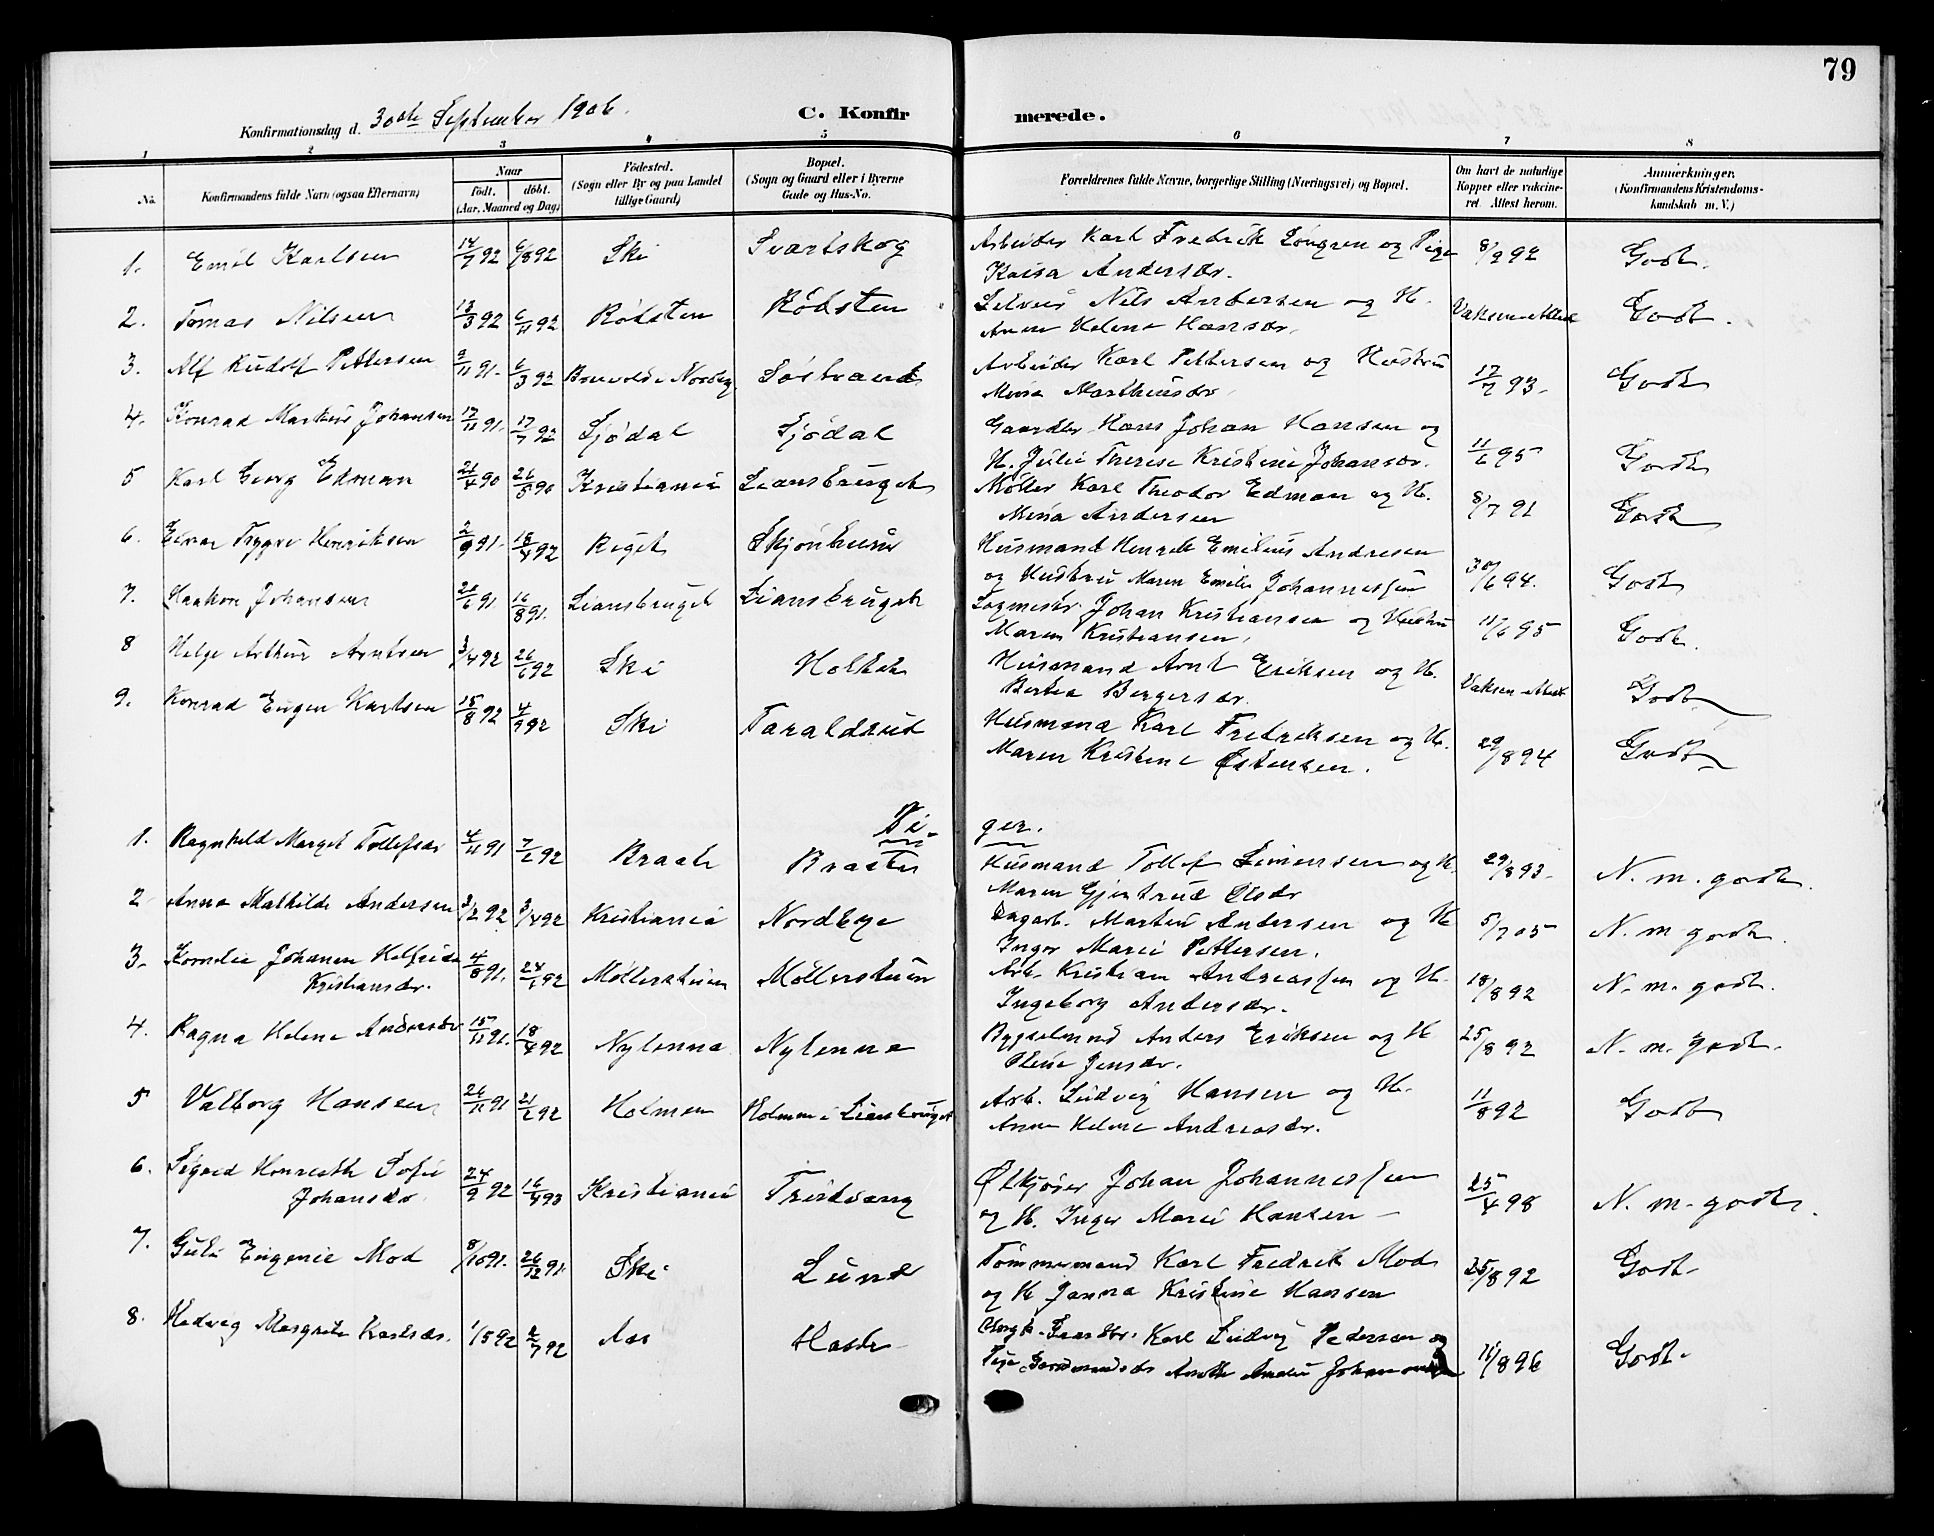 79
Konfirmationsdag d. 30de September 1906.
C. Konfirmerede.
1 2 3 4 5 6 7 8
No.
Konfirmandens fulde Navn (ogsaa Efternavn)
Naar
födt. döbt.
(Aar, Maaned og Dag)
Födested.
(Sogn eller By og paa Landet
tillige Gaard)
Bopæl.
(Sogn og Gaard eller i Byerne
Gade og Hus-No.
Forældrenes fulde Navne, borgerlige Stilling (Næringsvei) og Bopæl.
Om havt de naturlige
Kopper eller vakcine-
ret. Attest herom.
Anmærkninger.
(Konfirmandens Kristendoms-
kundskab m. V.)
1. Emil Karlsen 14/7 92 6/8 92 Ski Svartskog Arbeider Karl Fredrik Löngren og Pige 8/9 92 Godt.
Kaisa Andersdr.
2. Tomas Nilsen 13/3 92 6/11 92 Rödsten Rödsten Nils Andersen og H. Vaksen Attest Godt.
Anne Helene Hansdr.
3. Alf Rudolf Pettersen 9/11 91. 6/3 92 Nordby Söstrand Arbeider Karl Pettersen og Hustru 17/7 93. Godt
Mina Marthinsdr.
4. Konrad Markus Johansen 17/11 91. 17/7 92 Sjödal Sjödal Gaardbr. Hans Johan Hansen og 11/6 95 Godt
H. Julie Therese Kristine Johansdr.
5 Karl Georg Edman 21/4 90 26/5 90 Kristiania Liansbruget Möller Karl Theodor Edman og H. 8/7 91 Godt
Mina Andersen
6. Einar Trygve Henriksen 2/9 91. 18/4 92 Ryget Skjönhaug Husmand Henrik Emilius Andresen 30/6 94. Godt
og Hustru Maren Emilie Johannessen
7. Haakon Johansen 21/6 91 16/8 91. Liansbruget Liansbruget Sagmester Johan Kristiansen og Hustru 11/6 95 Godt.
Maren Kristiansen.
8 Helge Arthur Arntsen 3/4 92 26/6 92 Ski Holstad Husmand Arnt Eriksen og H. Vaksen Attest Godt
Berthea Bergersdr.
9. Konrad Eugen Karlsen 15/8 92 4/9 92 Ski Taraldrud Husmand Karl Fredriksen og H. 29/8 94 Godt
Maren Kristine Östensen.
Piger.
1. Ragnhild Marget Tollefsdr 4/11 91 7/6 92 Braate Braaten Husmand Tollef Simensen og H. 29/8 93. N. m. godt.
Maren Gjertrud Olsdr
2 Anna Mathilde Andersen 3/2 92 3/4 92 Kristiania Nordbye Dagarb. Martin Andersen og H 5/7 05 N. m godt.
Inger Marie Pettersen.
3. Kornelie Johanne Helfrida 4/8 91. 24/1 92 Möllerstuen Möllerstuen Arb. Kristian Andreassen og H. 18/8 92 N. m. godt.
Kristiansdr. Ingeborg Andersdr.
4. Ragna Helene Andersdr 15/11 91. 18/4 92 Nylenna Nylenna Bygselmand Anders Eriksen og H 25/8 92 N. m. godt.
Oline Jensdr.
5 Valborg Hansen 26/11 91 21/6 92 Holmen Holmen i Liansbruget Arb. Ludvig Hansen og H. 11/8 92 Godt
Anne Helene Andreasdr.
6. Sigrid Henriette Sofie 24/9 92 16/4 93 Kristiania Tristvang Ölkjörer Johan Johannessen 25/4 98 N. m. godt.
Johansdr. og H. Inger Marie Hansen
7. Gula Eugenie Mod 8/10 91. 26/12 91. Ski Lund Tömmermand Karl Fredrik Mod 25/8 92 Godt.
og H Janna Kristine Hansen
8. Hedvig Margrete Karlsdr. 1/5 92 2/7 92 Aas Karl Ludvig Pedersen og 11/8 96 Godt.
Pige Anette Amalie